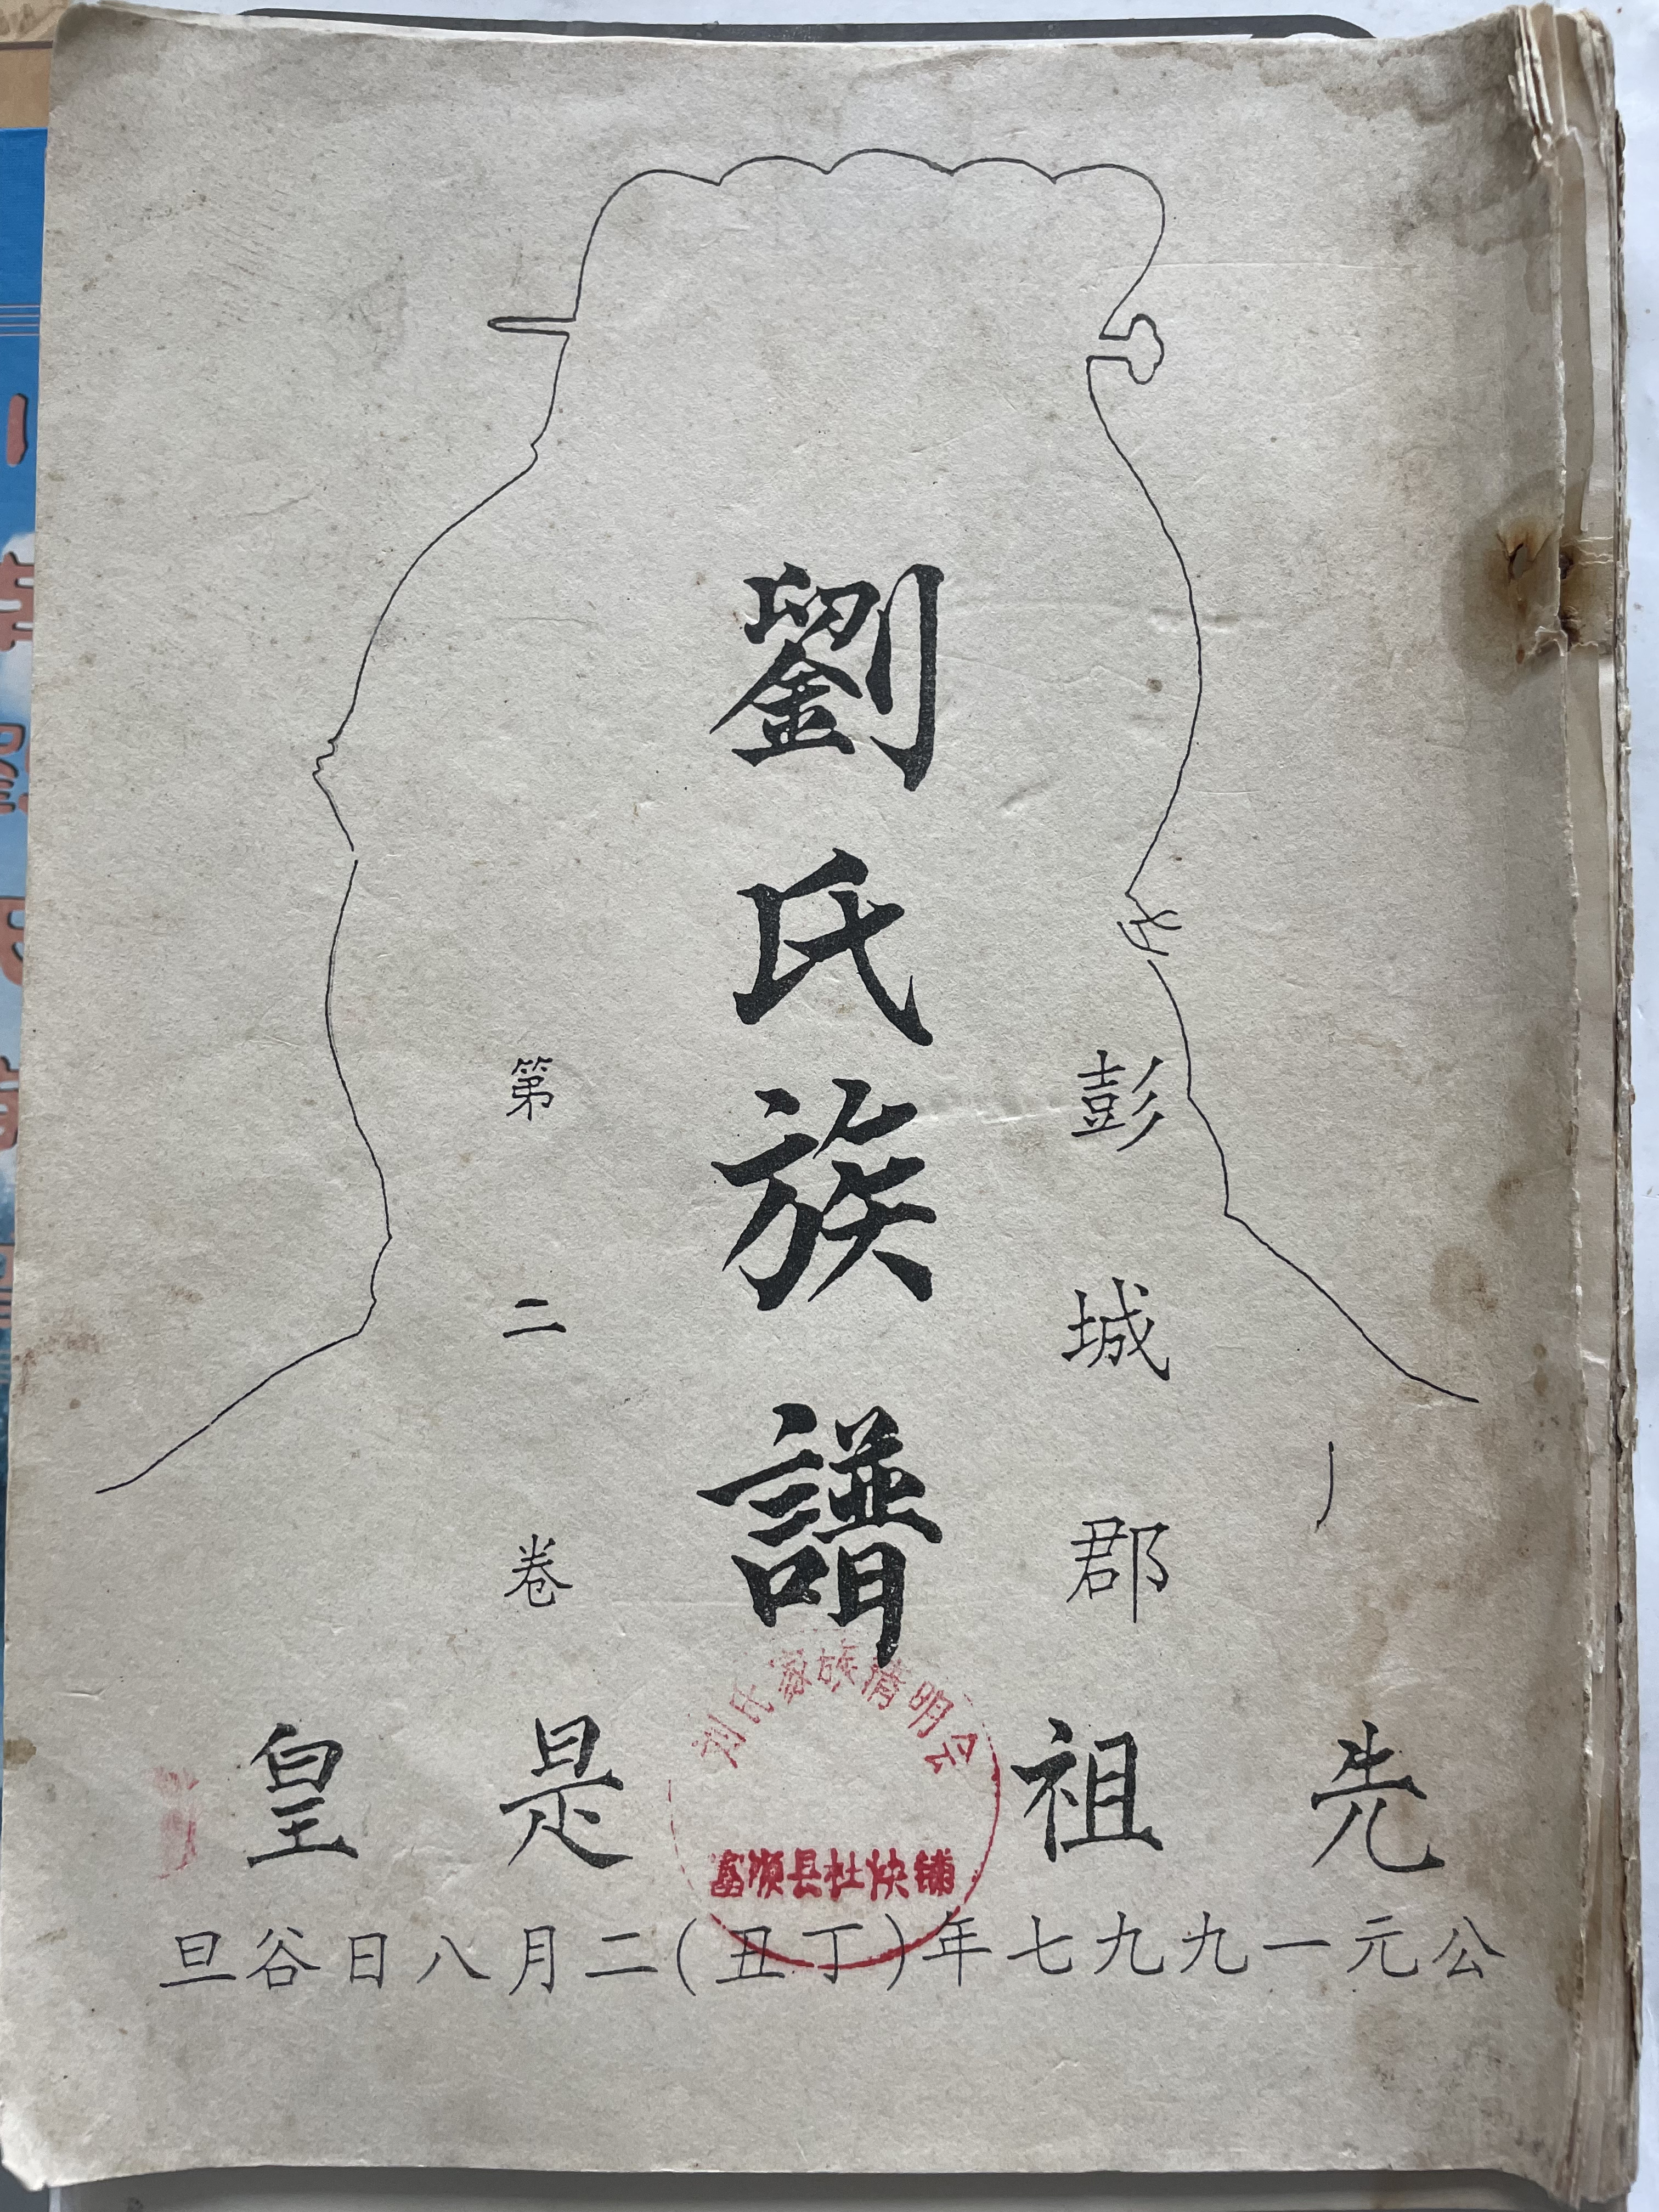 彭城郡
劉氏族譜
第二卷
刘氏家族清明会
富顺县杜快铺
先祖是皇
公元一九九七年(丁丑)二月八日谷旦